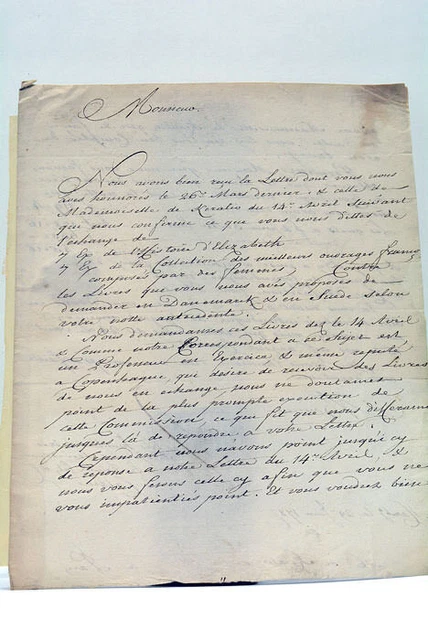 Monsieur.
Nous avons bien reçu la Lettre dont vous nous
aves honnorés le 26e Mars dernier, & celle de
Mademoiselle de Keralio du 14e Avril suivant
que nous confirme ce que vous nous dittes de
l'echange de
7 Ex de l'Histoire d'Elizabeth
7 Ex de la Collection des meilleurs ouvrages françs
composés par des femmes, Contre
les Livres que vous nous avés proposés de
demander en Danemarck & en Suede selon
votre notte antecedente.
Nous demandames ces Livres dez le 14 Avril
& comme notre Correspondant a ce sujet est
un Professeur en Exercice & meme reputé
a Copenhague qui desire de recevoir des Livres
de nous en echange nous ne doutames
point de la plus prompte execution de
cette Commission, ce que fit que nous differames
jusques là de repondre a votre Lettre.
Cependant nous n'avons point jusqu'icy
de reponse a notre Lettre du 14e Avril, &
nous vous ferons celle cy afin que vous ne
vous impatientiés point. Et vous voudrés bien